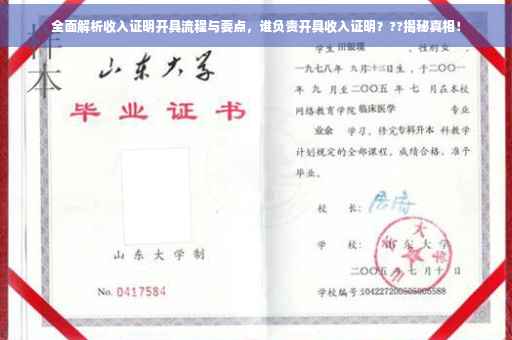 全面解析收入证明开具流程与要点，谁负责开具收入证明？??揭秘真相！
样本
山东大学
毕业证书
山东大学制
No. 0417584
学生 田银瑞 ，性别女 ，
一九七八年 九月十三日生，于二〇〇一
年 九 月至二〇〇五 年 七 月在本校
网络教育学院 临床医学 专业
业余 学习，修完专科升本 科教学
计划规定的全部课程，成绩合格，准予
毕业。
校 长：
学 校： 山东大学
二〇〇五 年 七 月 十 日
学校编号: